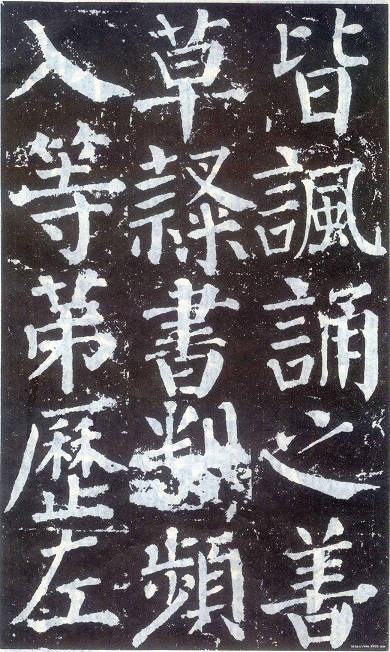 皆諷誦之善
草隸書判頻
入等第歷左